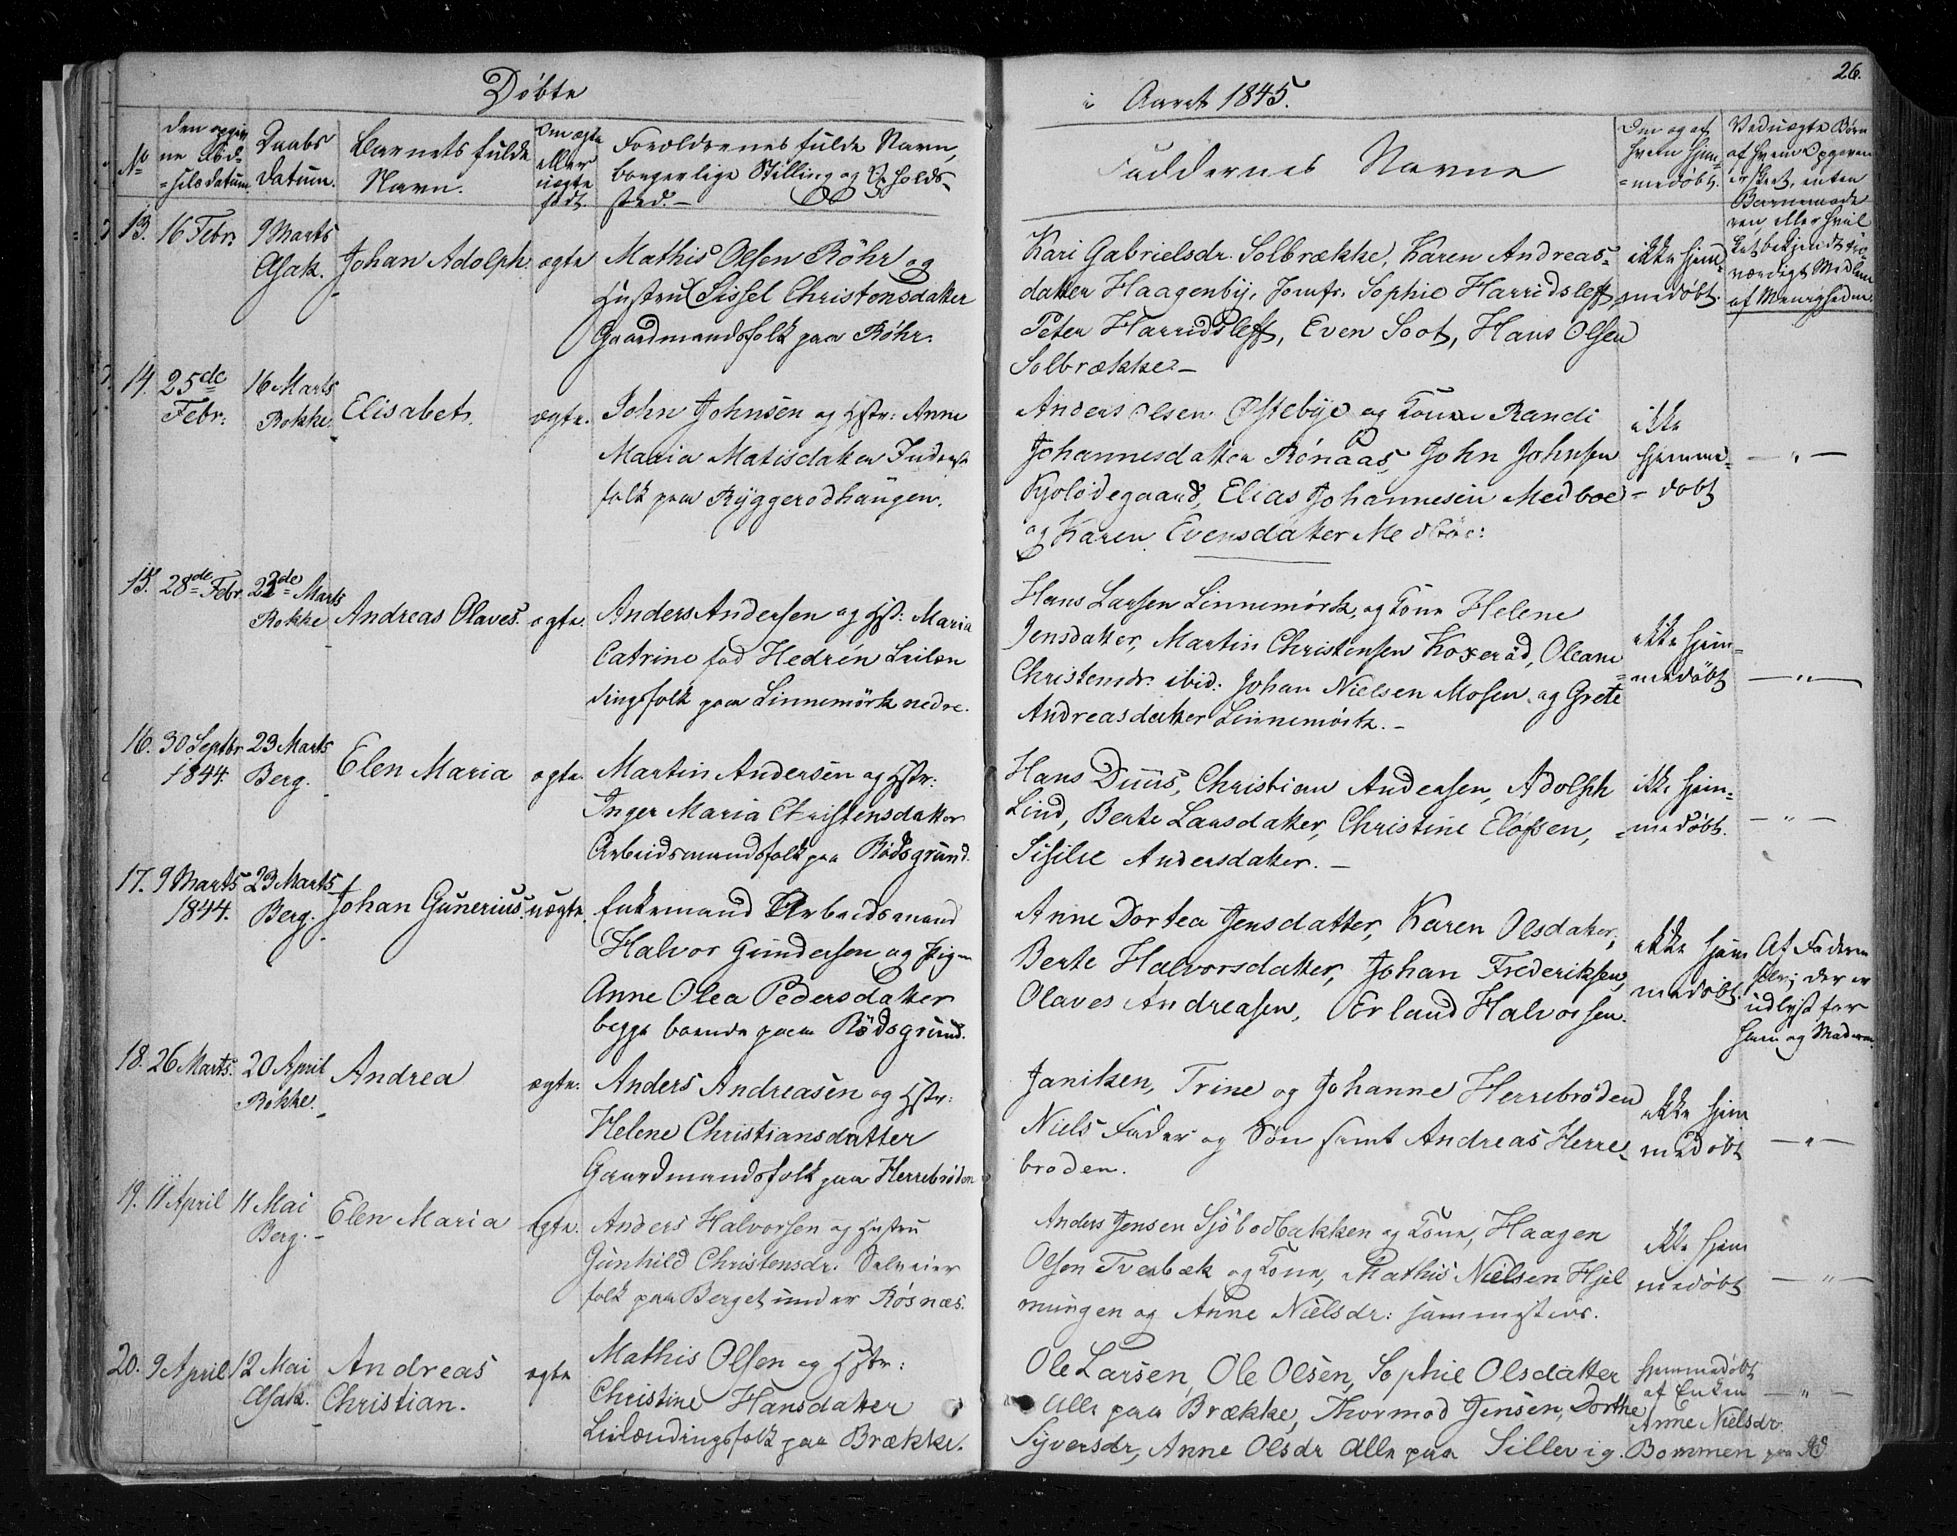 Døbte
i Aaret 1845.
26.
No
den opgiv
ne Fød-
selsdatum.
Daabs
datum.
Barnets fulde
Navn.
Om ægte
eller
uægte
født.
Forældrenes fulde Navn,
borgerlige Stilling og Opholds-
sted.-
Faddernes Navne
Om og af
hvem hjem-
=medøbt.
Ved uægte Børn
af hvem Opgaven
er skeet, enten
Barnemode
ren, eller hvil
ket bekjendt tro-
værdigt Medlem
af Menigheden.
13. 16 Febr. 9 Marts Johan Adolph. ægte Mathis Olsen Röhr og
Asak.
Hustru Sissel Christensdatter
Gaardmandsfolk paa Röhr.
Kari Gabrielsdr. Solbrække, Karen Andreas-
datter Haagenby, Jomfr. Sophie Harridsleff
Peter Harridsleff, Even Soot, Hans Olsen
Solbrække-
ikke hjem
medøbt.
14. 25de 16 Marts Elisabet. ægte. John Johnsen og Hstr: Anne
Febr: Rokke.
Maria Matisdatter Inderst
folk paa Ryggerødhaugen.
Anders Olsen Østebye og Kone Randi
Johannesdatter Rønaas, John Johnsen
Kjolødegaard, Elias Johannesen Medboe
og Karen Evensdatter Medböe:
ikke
hjemme-
=døbt
- " -
15. 28de Febr. 23de Marts Andreas Olaves. ægte. Anders Andersen og Hst: Maria
Rokke
Catrine fød Hedrén Leilæn
dingsfolk paa Linnemörk nedre.
Hans Larsen Linnemörk, og Kone Helene
Jensdatter, Martin Christensen Koxerød, Oleane
Christensdr. ibid: Johan Nielsen Mosen og Grete
Andreasdatter Linnemörk.-
ikke hjem-
=medøbt
- " -
16. 30 Septbr 23 Marts Elen Maria ægte. Martin Andersen og Hstr:
1844. Berg.
Inger Maria Christensdatter
Arbeidsmandsfolk paa Rödsgrund.
Hans Duus, Christian Andersen, Adolph
Lind, Berte Larsdatter, Christine Elofsen,
Sisilie Andersdatter.-
ikke hjem-
=medøbt.
- " -
17. 9 Marts 23 Marts Johan Gunerius. uægte. Enkemand Arbeidsmand
1844. Berg.
Halvor Gundersen og Pigen
Anne Olea Pedersdatter
begge boende paa Rödsgrund.
Anne Dortea Jensdatter, Karen Olsdatter,
Berte Halvorsdatter, Johan Frederiksen,
Olaves Andreasen, Erland Halvorsen.
ikke hjem
medøbt.
Af Faderen
selv; der er
udlyst for
ham og Moderen.
18. 26 Marts. 20 April Andrea ægte. Anders Andreasen og Hstr:
Rokke.
Helene Christiansdatter
Gaardmandsfolk paa Herrebrøden
Janiken, Trine og Johanne Herrebrøden
Niels Fader og Søn samt Andreas Herre-
brøden.
ikke hjem
medøbt
- " -
19. 11 April 11 Mai Elen Maria ægte. Anders Halvorsen og Hustru
Berg.
Gunhild Christensdr. Selveier
folk paa Berget under Røsnæs.
Anders Jensen Sjøbodbakken og Kone, Haagen
Olsen Tverbæk og Kone, Mathis Nielsen Hjel
mungen og Anne Nielsdr: sammesteds.
ikke hjem
medøbt
- " -
20. 9 April 12 Mai Andreas ægte Mathis Olsen og Hstr:
Asak. Christian.
Christine Hansdatter
Leilændingsfolk paa Brække.
Ole Larsen, Ole Olsen, Sophie Olsdatter
Alle paa Brække, Thormod Jensen, Dorthe
Syversdr, Anne Olsdr Alle paa Sillevig.
hjemmedøbt
af Enken
Anne Nielsdr
Bommen paa
- " -